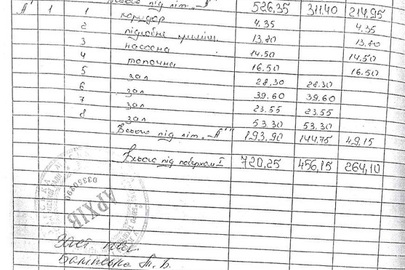 Всього під літ. „А" 526,35 311,40 214,95
А' 1 1 коридор 4.35 4.35
2 підсобне приміщ. 13.20 13.20
3 насосна 14.50 14.50
4 топочна 16.50 16.50
5 зал 28.30 28.30
6 зал 39.60 39.60
7 зал 23.55 23.55
8 зал 53.30 53.30
Всього під літ. „А'" 193.90 144,75 49,15
Всього під поверхом I 720,25 456,15 264,10
АРХІВ